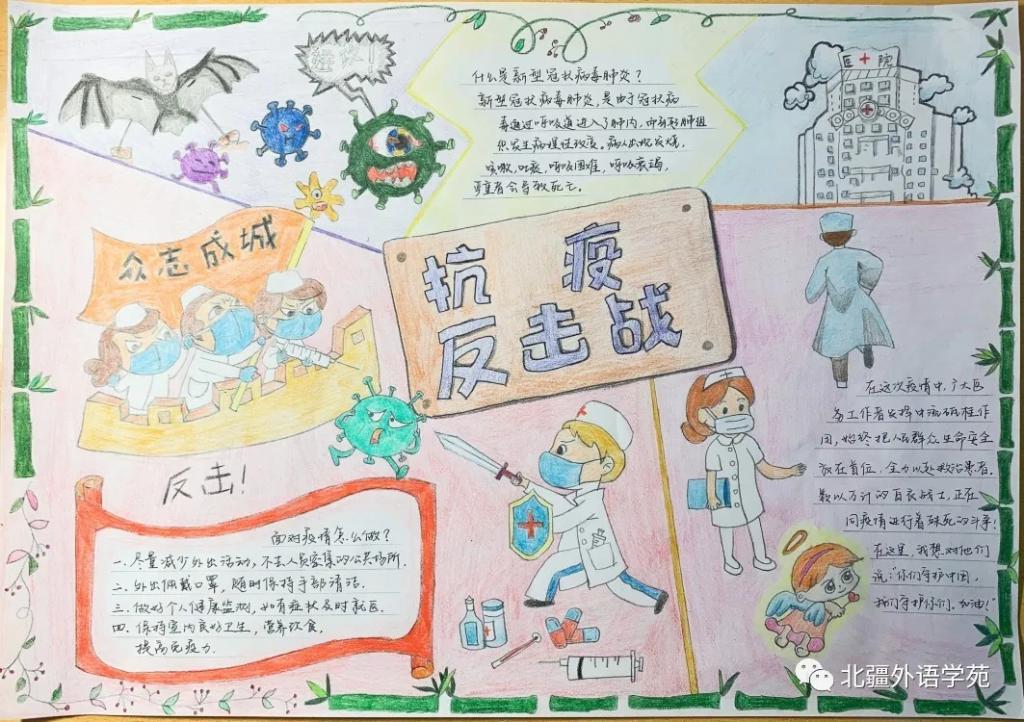 什么是新型冠状病毒肺炎？
新型冠状病毒肺炎，是由于冠状病
毒通过呼吸道进入了肺内，而引起肺组
织发生病理性改变，病人出现发烧，
咳嗽，吐痰，呼吸困难，呼吸衰竭，
严重者会导致死亡。
医院
众志成城
抗疫
反击战
反击！
在这次疫情中，广大医
务工作者发挥中流砥柱作
用，始终把人民群众生命安全
放在首位，全力以赴救治患者。
数以万计的白衣战士，正在
同疫情进行着殊死的斗争！
在这里，我想对他们
说：“你们守护中国，
我们守护你们。加油！”
面对疫情怎么做？
一.尽量减少外出活动，不去人员密集的公共场所.
二.外出佩戴口罩，随时保持手部清洁.
三.做好个人健康监测，如有症状及时就医.
四.保持室内良好卫生，营养饮食，
提高免疫力.
北疆外语学苑